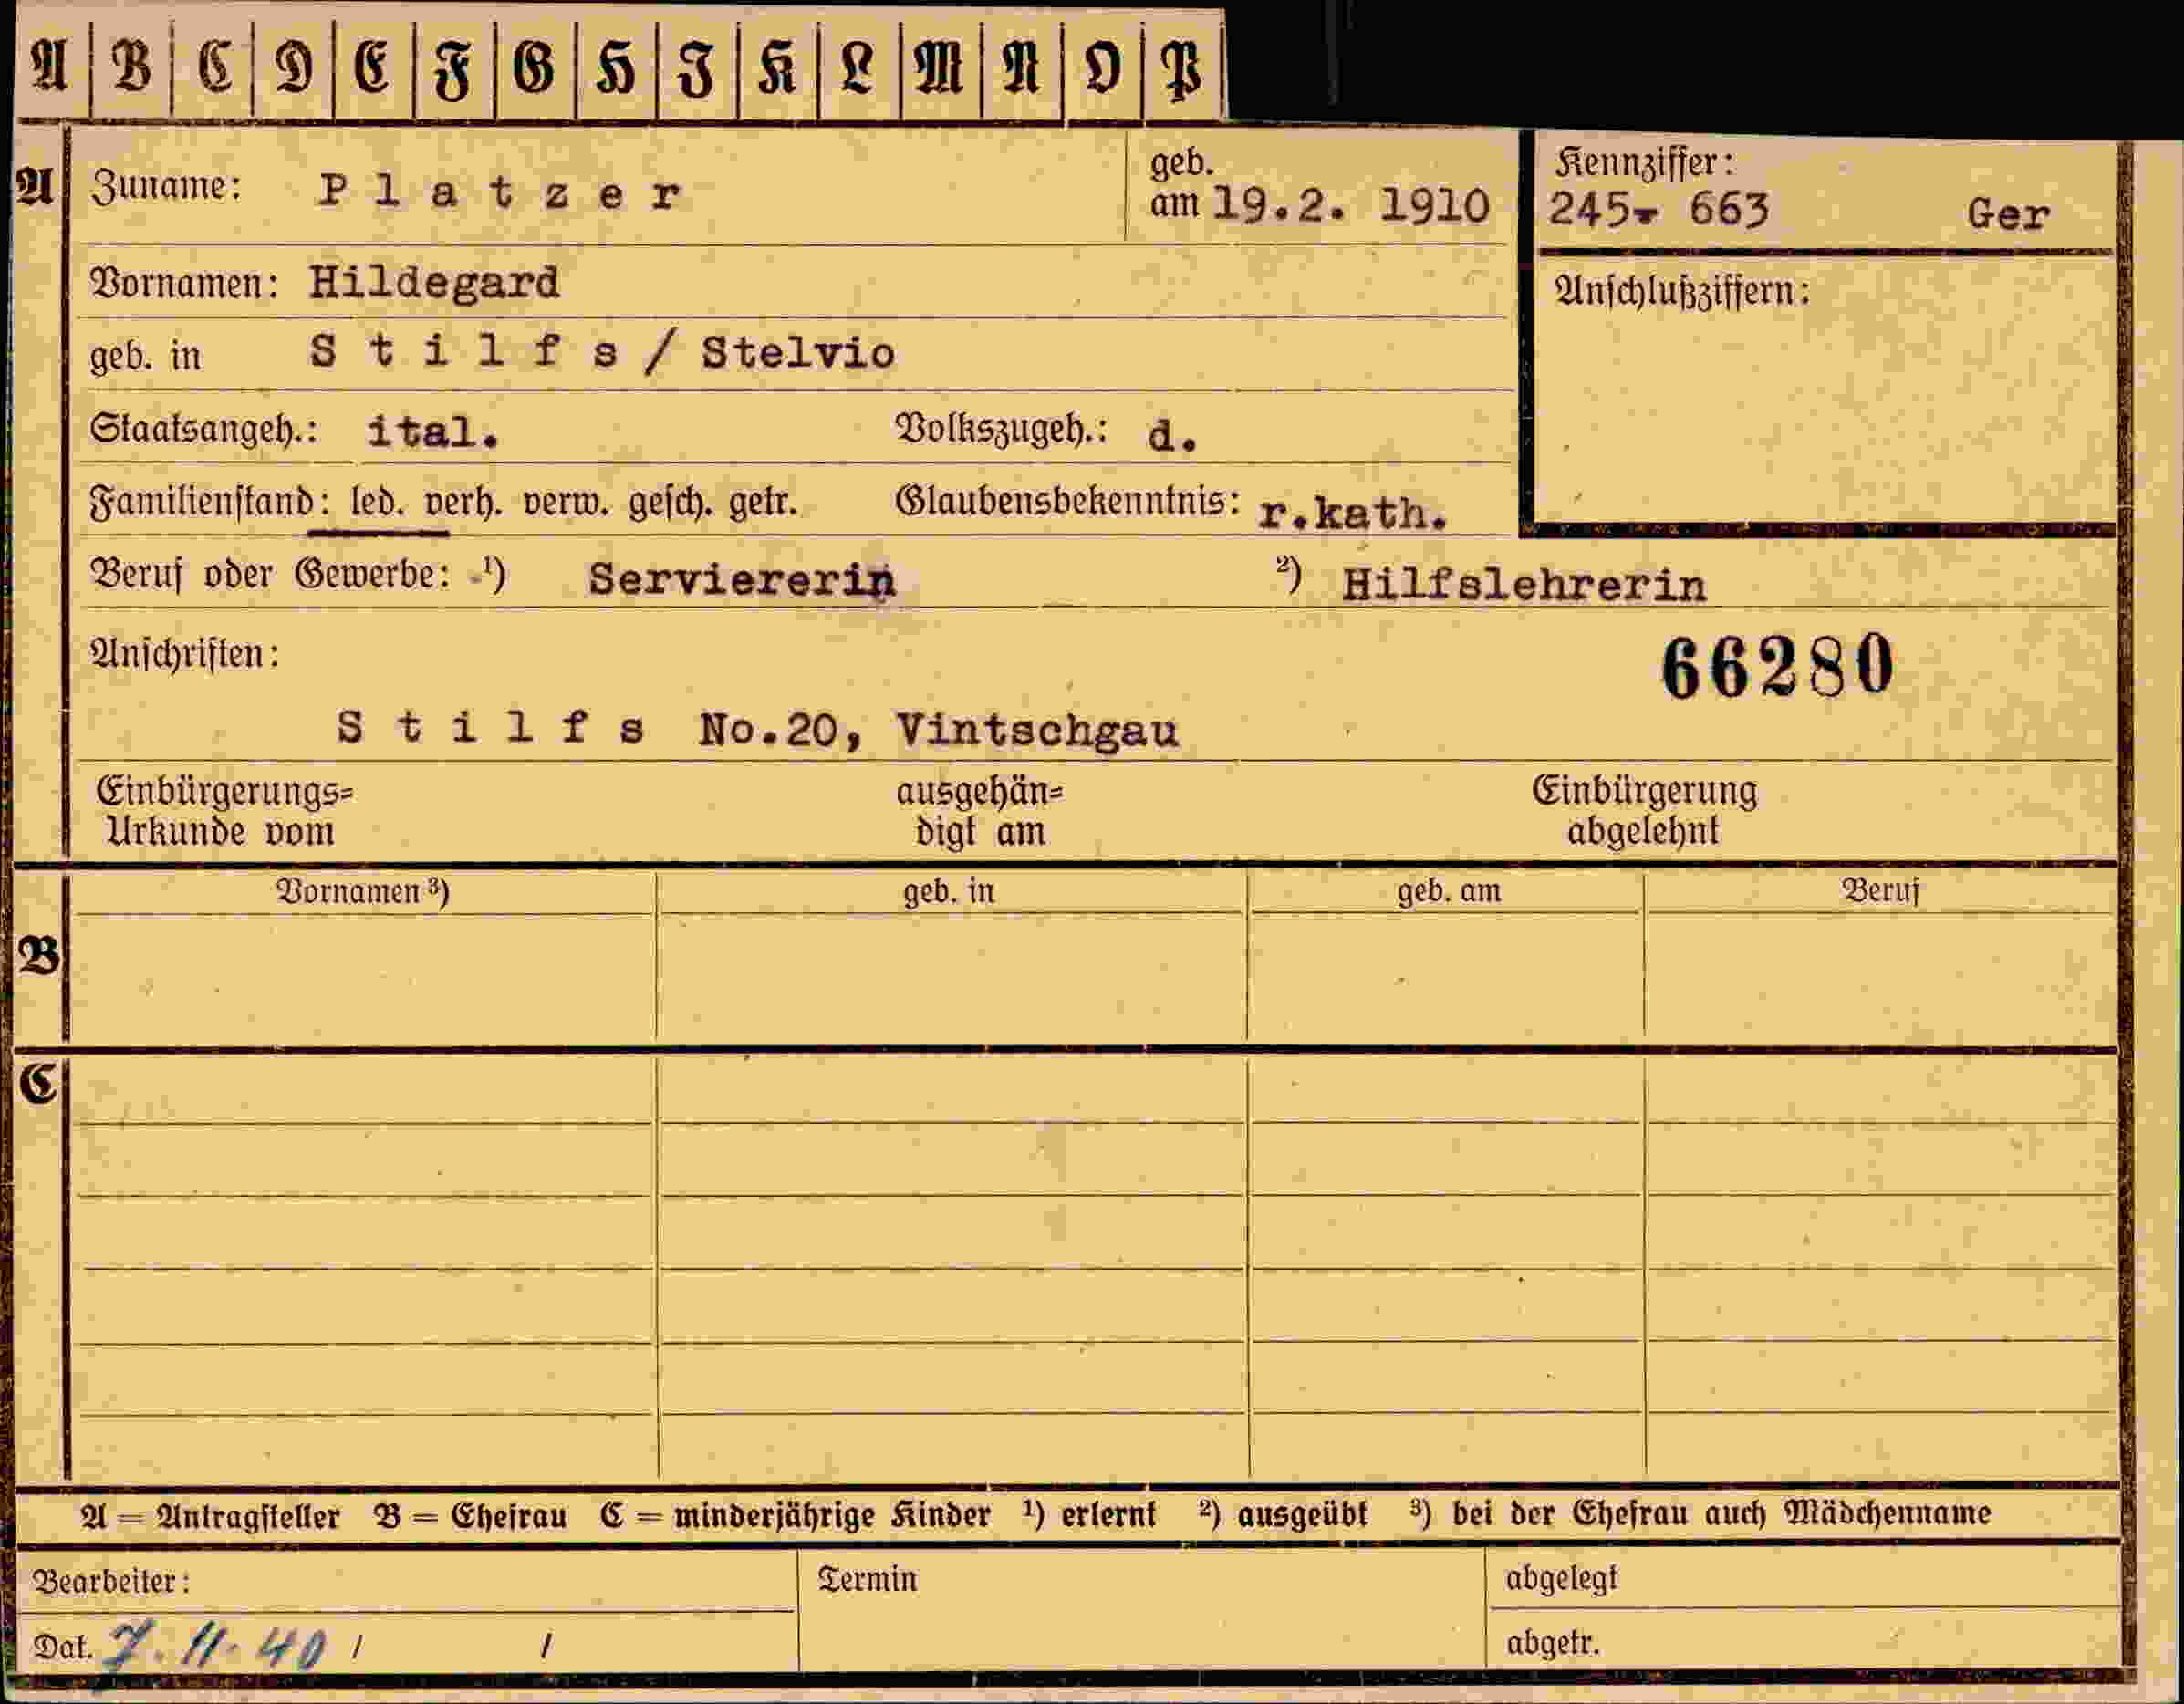 A B C D E F G H I K L M N O P
A Zuname: Platzer geb. am 19.2. 1910 Kennziffer: 245- 663 Ger
Vornamen: Hildegard Anschlußziffern:
geb. in Stilfs / Stelvio
Staatsangeh.: ital. Volkszugeh.: d.
Familienstand: led. verh. verw. gesch. getr. Glaubensbekenntnis: r.kath.
Beruf oder Gewerbe: ¹) Serviererin ²) Hilfslehrerin
Anschriften: 66280
Stilfs No.20, Vintschgau
Einbürgerungs= ausgehän= Einbürgerung
Urkunde vom digt am abgelehnt
Vornamen ³) geb. in geb. am Beruf
B
C
A = Antragsteller B = Ehefrau C = minderjährige Kinder ¹) erlernt ²) ausgeübt ³) bei der Ehefrau auch Mädchenname
Bearbeiter: Termin abgelegt
Dat. 7.11.40 / / abgetr.